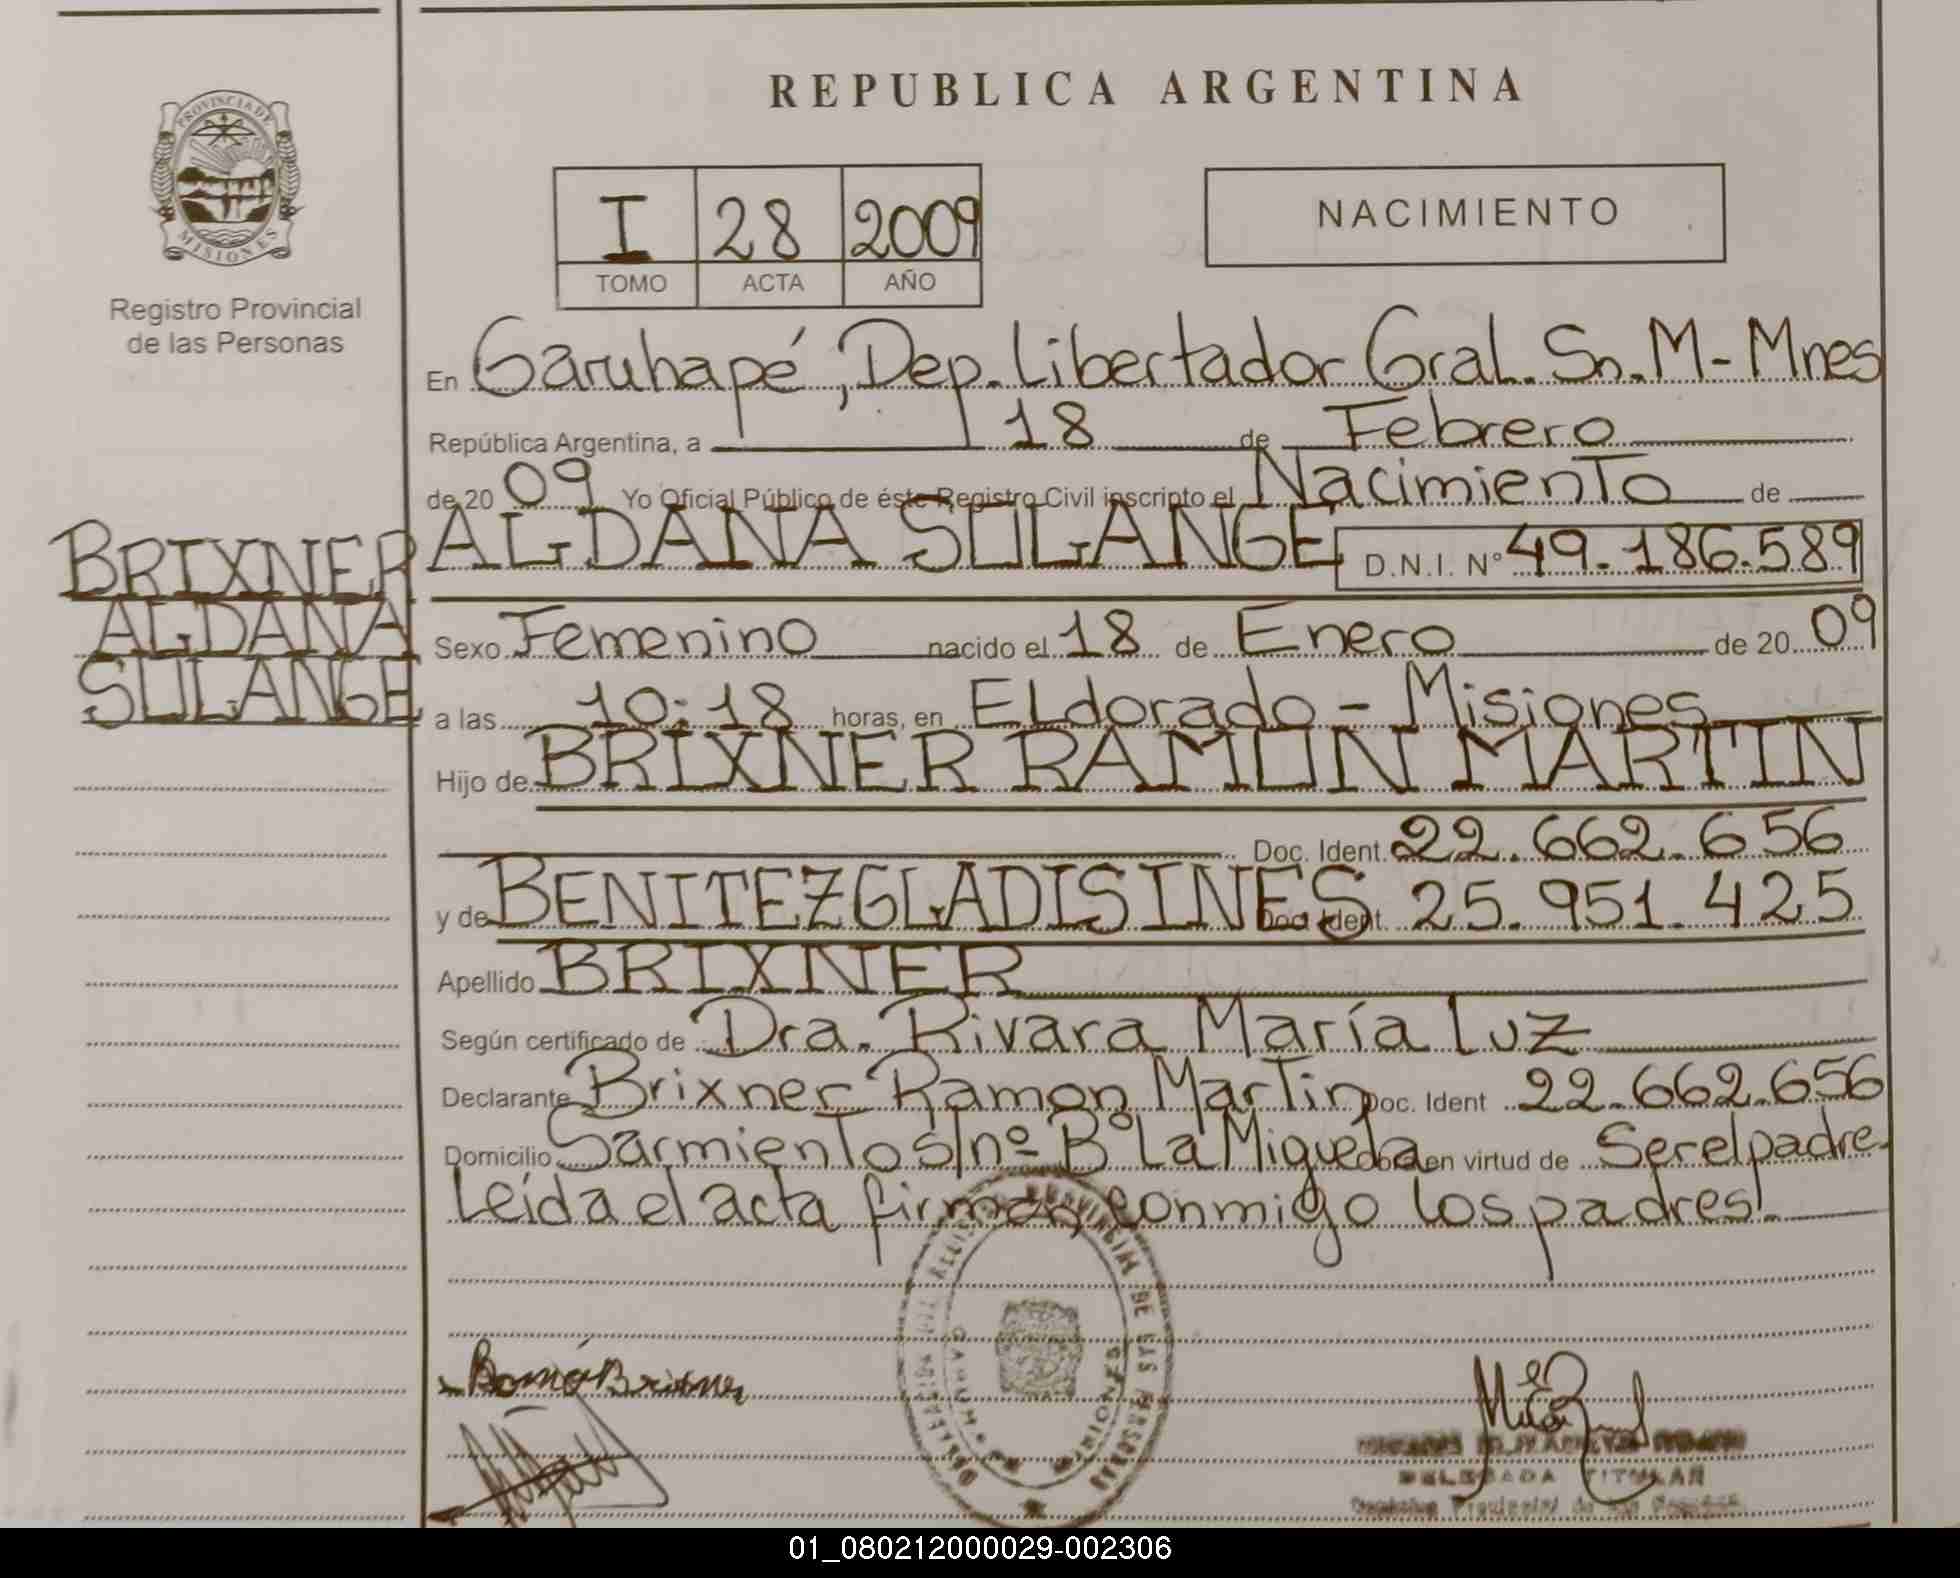 REPUBLICA ARGENTINA
PROVINCIA DE
MISIONES
Registro Provincial
de las Personas
I 28 2009
TOMO ACTA AÑO
NACIMIENTO
En Garuhapé, Dep. Libertador Gral. Sn. M - Mnes
República Argentina, a 18 de Febrero
de 20 09 Yo Oficial Público de éste Registro Civil inscripto el Nacimiento de
BRIXNER
ALDANA
SOLANGE
ALDANA SOLANGE D.N.I. N° 49.186.589
Sexo Femenino nacido el 18 de Enero de 20 09
a las 10:18 horas, en ELdorado - Misiones
Hijo de BRIXNER RAMON MARTIN
Doc. Ident. 22.662.656
y de BENITEZ GLADIS INES Doc. Ident. 25.951.425
Apellido BRIXNER
Según certificado de Dra. Rivara María Luz
Declarante Brixner Ramon Martin Doc. Ident 22.662.656
Domicilio Sarmiento s/nº Bº La Miguela en virtud de Ser el padre.
Leída el acta firman conmigo los padres.
PROVINCIAL DE LAS PERSONAS
MISIONES
DELEGADA TITULAR
01_080212000029-002306